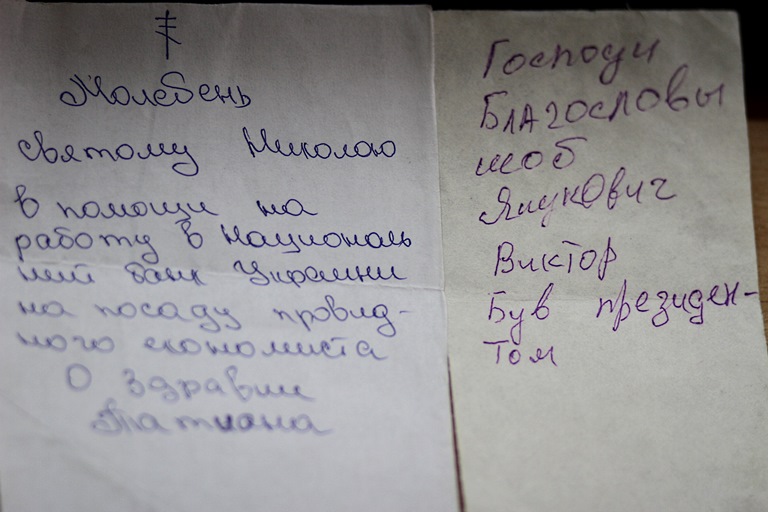 Молебень
Святому Николаю
в помощи на
работу в Националь
ний банк Украини
на посаду провид-
ного економиста
О здравии
Татиана
Господи
Благословы
шоб
Янукович
Виктор
Був президен-
том